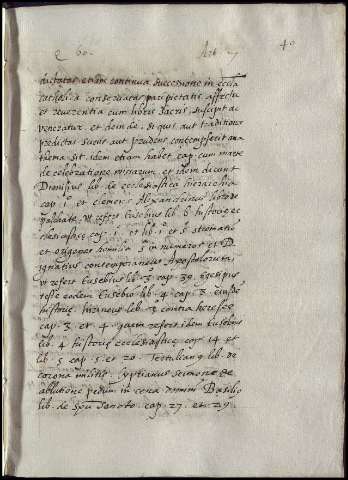 Q 60. Art. 40
dictatas et in continua successione in ecclã
catholica conservatas pari pietatis affectu
et reverentia cum libris sacris suscipit ac
veneratur. et deinde. si quis aut traditiones
predictas sciens aut prudens contempserit ana
thema sit. idem etiam habet cap. cum marthe
de celebratione missarum. et idem dicunt
Dionisius lib. de ecclesiastica hierarchia
cap. 1. et clemens Alexandrinus lib. de
paschate. ut refert Eusebius lib. 6 historiæ ec
clesiasticæ cap. et lib. 1. et 6 stromatũ
et origenes homilia 5 in numeros et D.
ignatius contemporaneus Apostolorum
ut refert Eusebius lib. 3 cap. 39. Egesipus
teste eodem Eusebio lib. 4 cap. 8 eiusdẽ
historiæ. Irineus lib. 3 contra hereses
cap. 3. et 4. quem refert idem Eusebius
lib. 4 historiæ ecclesiasticæ cap. 14 et
lib. 5 cap. 5. et 20. Tertulianus lib. de
corona militis. Cyprianus sermone de
ablutione pedum in cena domini. Basilio
lib. de Spũ Sancto. cap. 27. et 29.